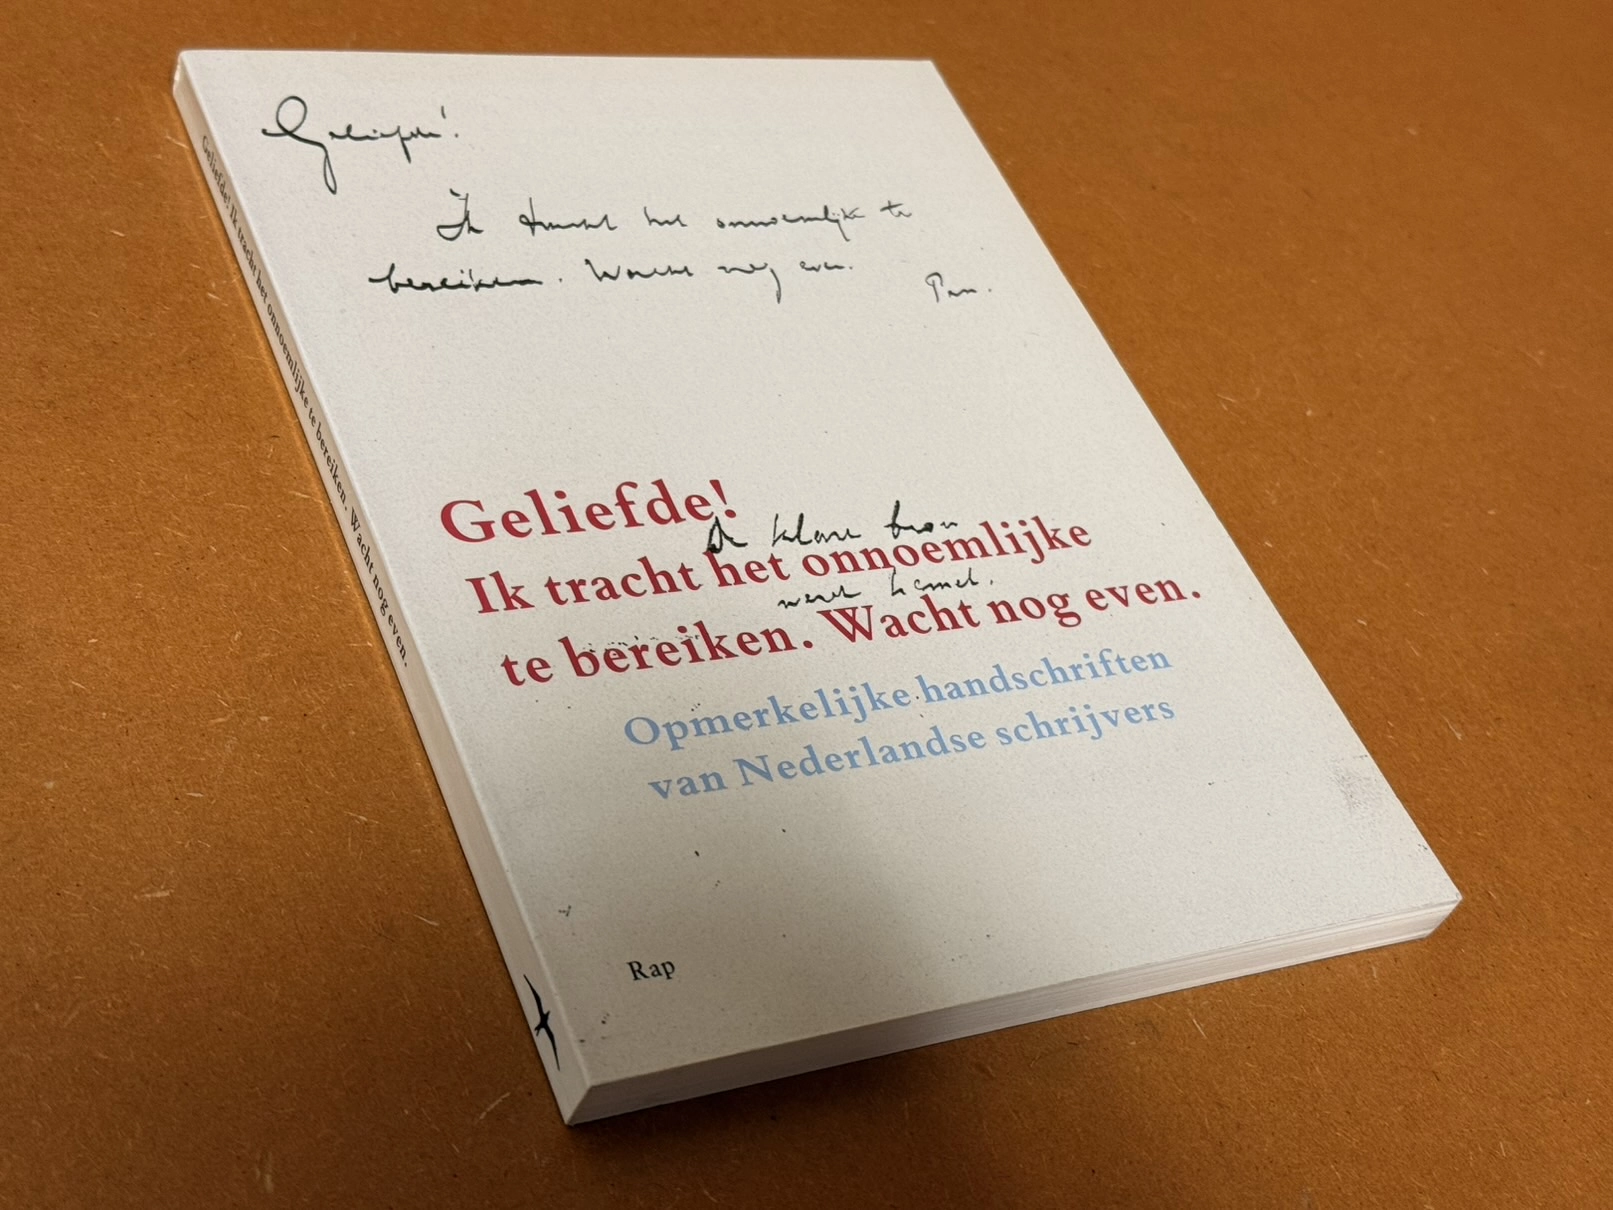 Geliefde!
Ik tracht het onnoemlijke te
bereiken. Wacht nog even.
Pan.
Geliefde!
De klare bron
Ik tracht het onnoemlijke
werd hemel.
te bereiken. Wacht nog even.
Opmerkelijke handschriften
van Nederlandse schrijvers
Rap
Geliefde! Ik tracht het onnoemlijke te bereiken. Wacht nog even.